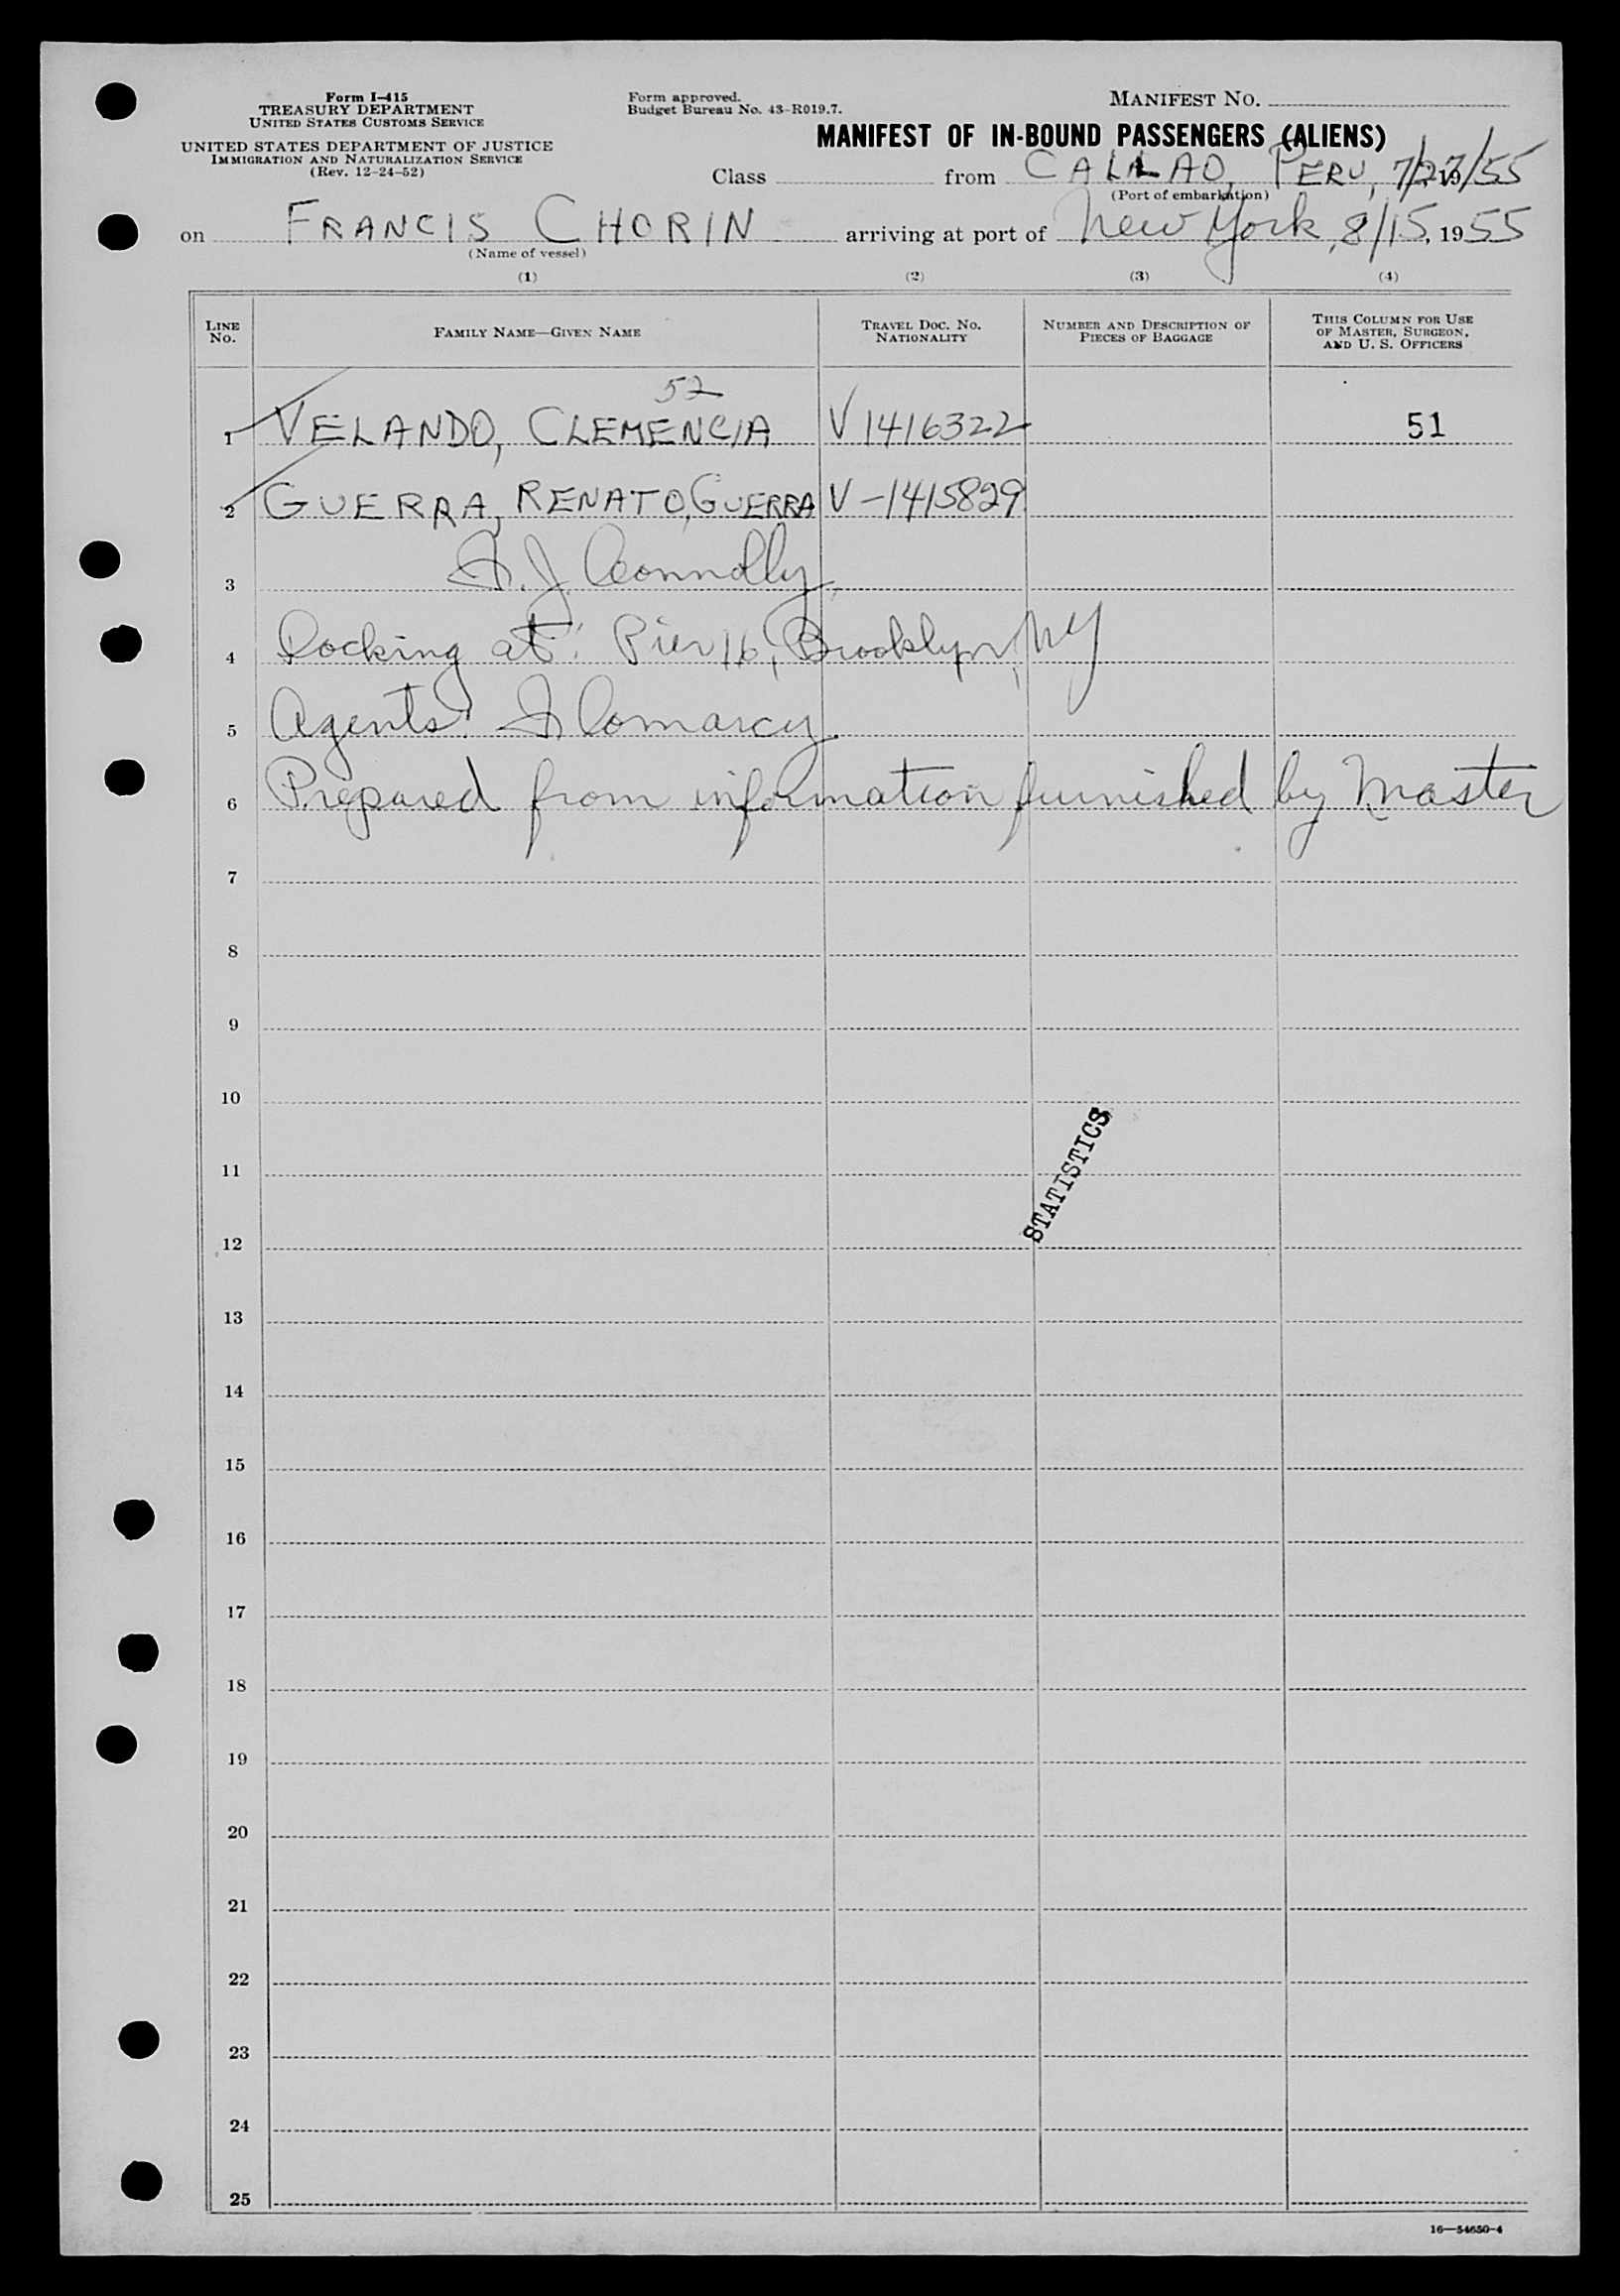 Form I-415
TREASURY DEPARTMENT
UNITED STATES CUSTOMS SERVICE
UNITED STATES DEPARTMENT OF JUSTICE
IMMIGRATION AND NATURALIZATION SERVICE
(Rev. 12-24-52)
Form approved.
Budget Bureau No. 43-R019.7.
MANIFEST NO.
MANIFEST OF IN-BOUND PASSENGERS (ALIENS)
Class from CALLAO, PERU, 7/27/55
(Port of embarkation)
on FRANCIS CHORIN arriving at port of New York, 8/15, 1955
(Name of vessel)
(1) (2) (3) (4)
LINE NO. FAMILY NAME—GIVEN NAME TRAVEL DOC. NO. NATIONALITY NUMBER AND DESCRIPTION OF PIECES OF BAGGAGE THIS COLUMN FOR USE OF MASTER, SURGEON, AND U. S. OFFICERS
52
1 VELANDO, CLEMENCIA V 1416322 51
2 GUERRA, RENATO, GUERRA V-1415829
3 J. Connolly
4 Docking at: Pier 16, Brooklyn, NY
5 Agents: Comarcy
6 Prepared from information furnished by Master
7
8
9
10
11
STATISTICS
12
13
14
15
16
17
18
19
20
21
22
23
24
25
16—54650-4